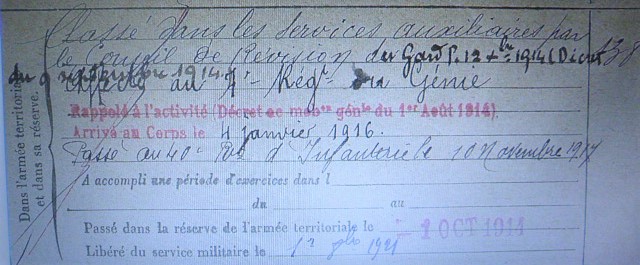 Classé dans les services auxiliaires par
le Conseil de Révision du Gard P. 12 xbre 1914 (Décret
du 9 septembre 1914.
Affecté au 7e Régt du Génie
Rappelé à l'activité (Décret de mobon génle du 1er Août 1914).
Arrivé au Corps le 4 janvier 1916.
Passé au 40e Rt d'Infanterie le 10 Novembre 1917
Dans l'armée territoria
et dans sa réserve.
A accompli une période d'exercices dans l
du au
Passé dans la réserve de l'armée territoriale le - 1 OCT 1914
Libéré du service militaire le 1er 1921